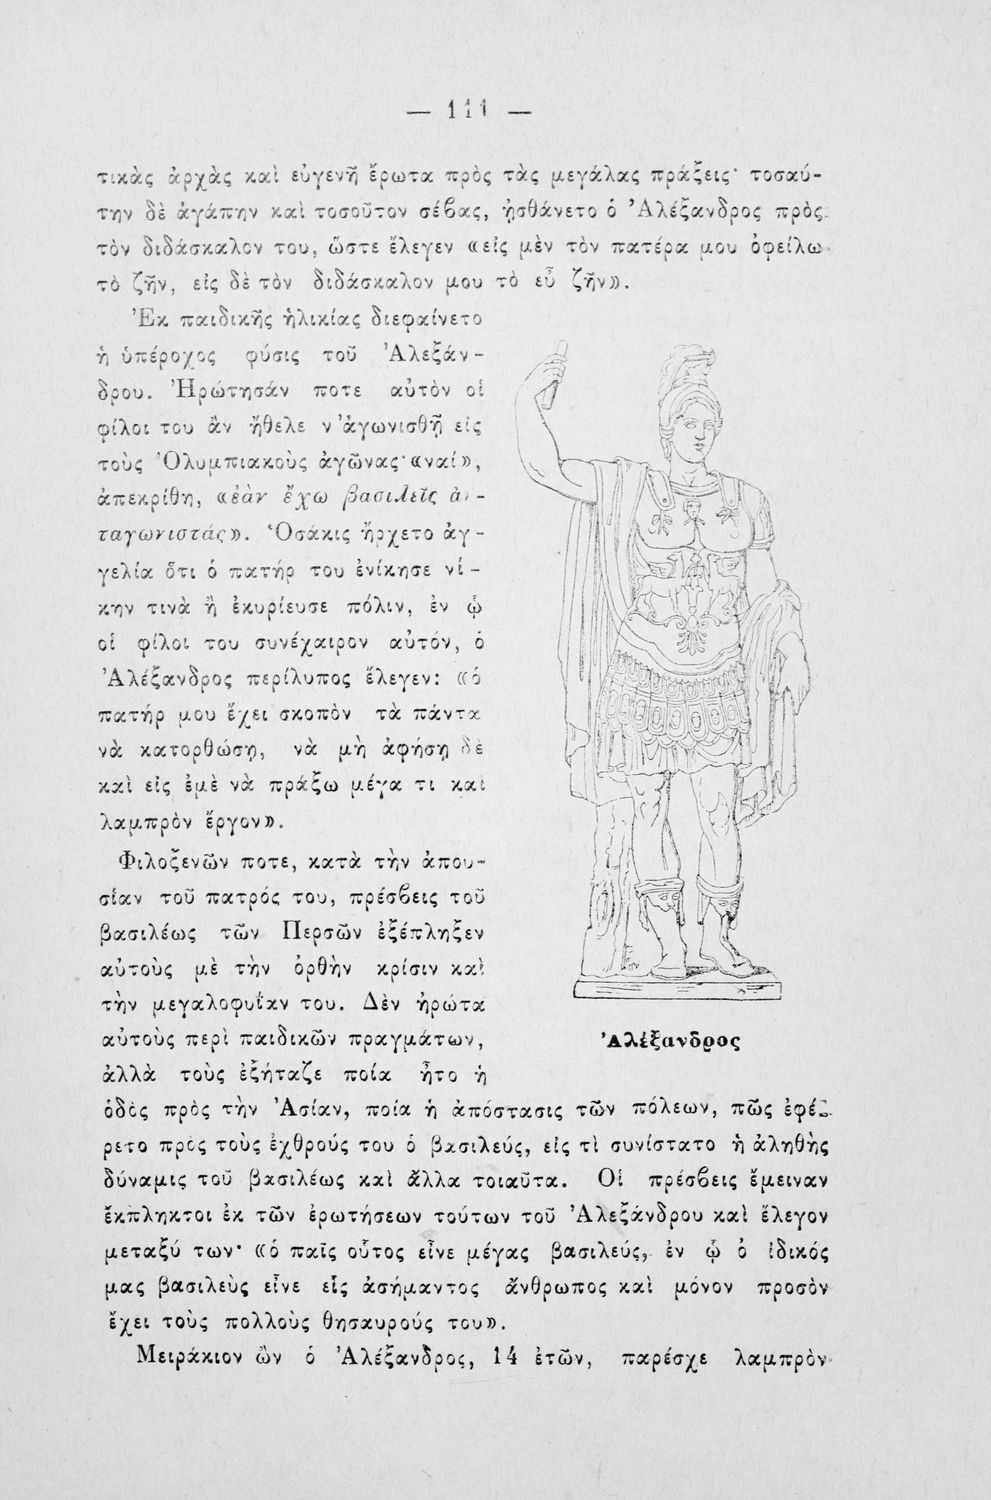 — 111 —
τικὰς ἀρχὰς καὶ εὐγενῆ ἔρωτα πρὸς τὰς μεγάλας πράξεις· τοσαύ-
την δὲ ἀγάπην καὶ τοσοῦτον σέβας, ᾐσθάνετο ὁ Ἀλέξανδρος πρὸς
τὸν διδάσκαλον του, ὥστε ἔλεγεν «εἰς μὲν τὸν πατέρα μου ὀφείλω
τὸ ζῆν, εἰς δὲ τὸν διδάσκαλον μου τὸ εὖ ζῆν».
Ἐκ παιδικῆς ἡλικίας διεφαίνετο
ἡ ὑπέροχος φύσις τοῦ Ἀλεξάν-
δρου. Ἠρώτησάν ποτε αὐτὸν οἱ
φίλοι του ἂν ἤθελε ν' ἀγωνισθῇ εἰς
τοὺς Ὀλυμπιακοὺς ἀγῶνας· «ναί»,
ἀπεκρίθη, «ἐὰν ἔχω βασιλεῖς ἀν-
ταγωνιστάς». Ὁσάκις ἤρχετο ἀγ-
γελία ὅτι ὁ πατήρ του ἐνίκησε νί-
κην τινὰ ἢ ἐκυρίευσε πόλιν, ἐν ᾧ
οἱ φίλοι του συνέχαιρον αὐτόν, ὁ
Ἀλέξανδρος περίλυπος ἔλεγεν: «ὁ
πατήρ μου ἔχει σκοπὸν τὰ πάντα
νὰ κατορθώσῃ, νὰ μὴ ἀφήσῃ δὲ
καὶ εἰς ἐμὲ νὰ πράξω μέγα τι καὶ
λαμπρὸν ἔργον».
Φιλοξενῶν ποτε, κατὰ τὴν ἀπου-
σίαν τοῦ πατρός του, πρέσβεις τοῦ
βασιλέως τῶν Περσῶν ἐξέπληξεν
αὐτοὺς μὲ τὴν ὀρθὴν κρίσιν καὶ
τὴν μεγαλοφυΐαν του. Δὲν ἠρώτα
αὐτοὺς περὶ παιδικῶν πραγμάτων,
ἀλλὰ τοὺς ἐξήταζε ποία ἦτο ἡ
Ἀλέξανδρος
ὁδὸς πρὸς τὴν Ἀσίαν, ποία ἡ ἀπόστασις τῶν πόλεων, πῶς ἐφέ-
ρετο πρὸς τοὺς ἐχθρούς του ὁ βασιλεύς, εἰς τὶ συνίστατο ἡ ἀληθὴς
δύναμις τοῦ βασιλέως καὶ ἄλλα τοιαῦτα. Οἱ πρέσβεις ἔμειναν
ἔκπληκτοι ἐκ τῶν ἐρωτήσεων τούτων τοῦ Ἀλεξάνδρου καὶ ἔλεγον
μεταξύ των· «ὁ παῖς οὗτος εἶνε μέγας βασιλεύς, ἐν ᾧ ὁ ἰδικός
μας βασιλεὺς εἶνε εἷς ἀσήμαντος ἄνθρωπος καὶ μόνον προσὸν
ἔχει τοὺς πολλοὺς θησαυρούς του».
Μειράκιον ὢν ὁ Ἀλέξανδρος, 14 ἐτῶν, παρέσχε λαμπρὸν